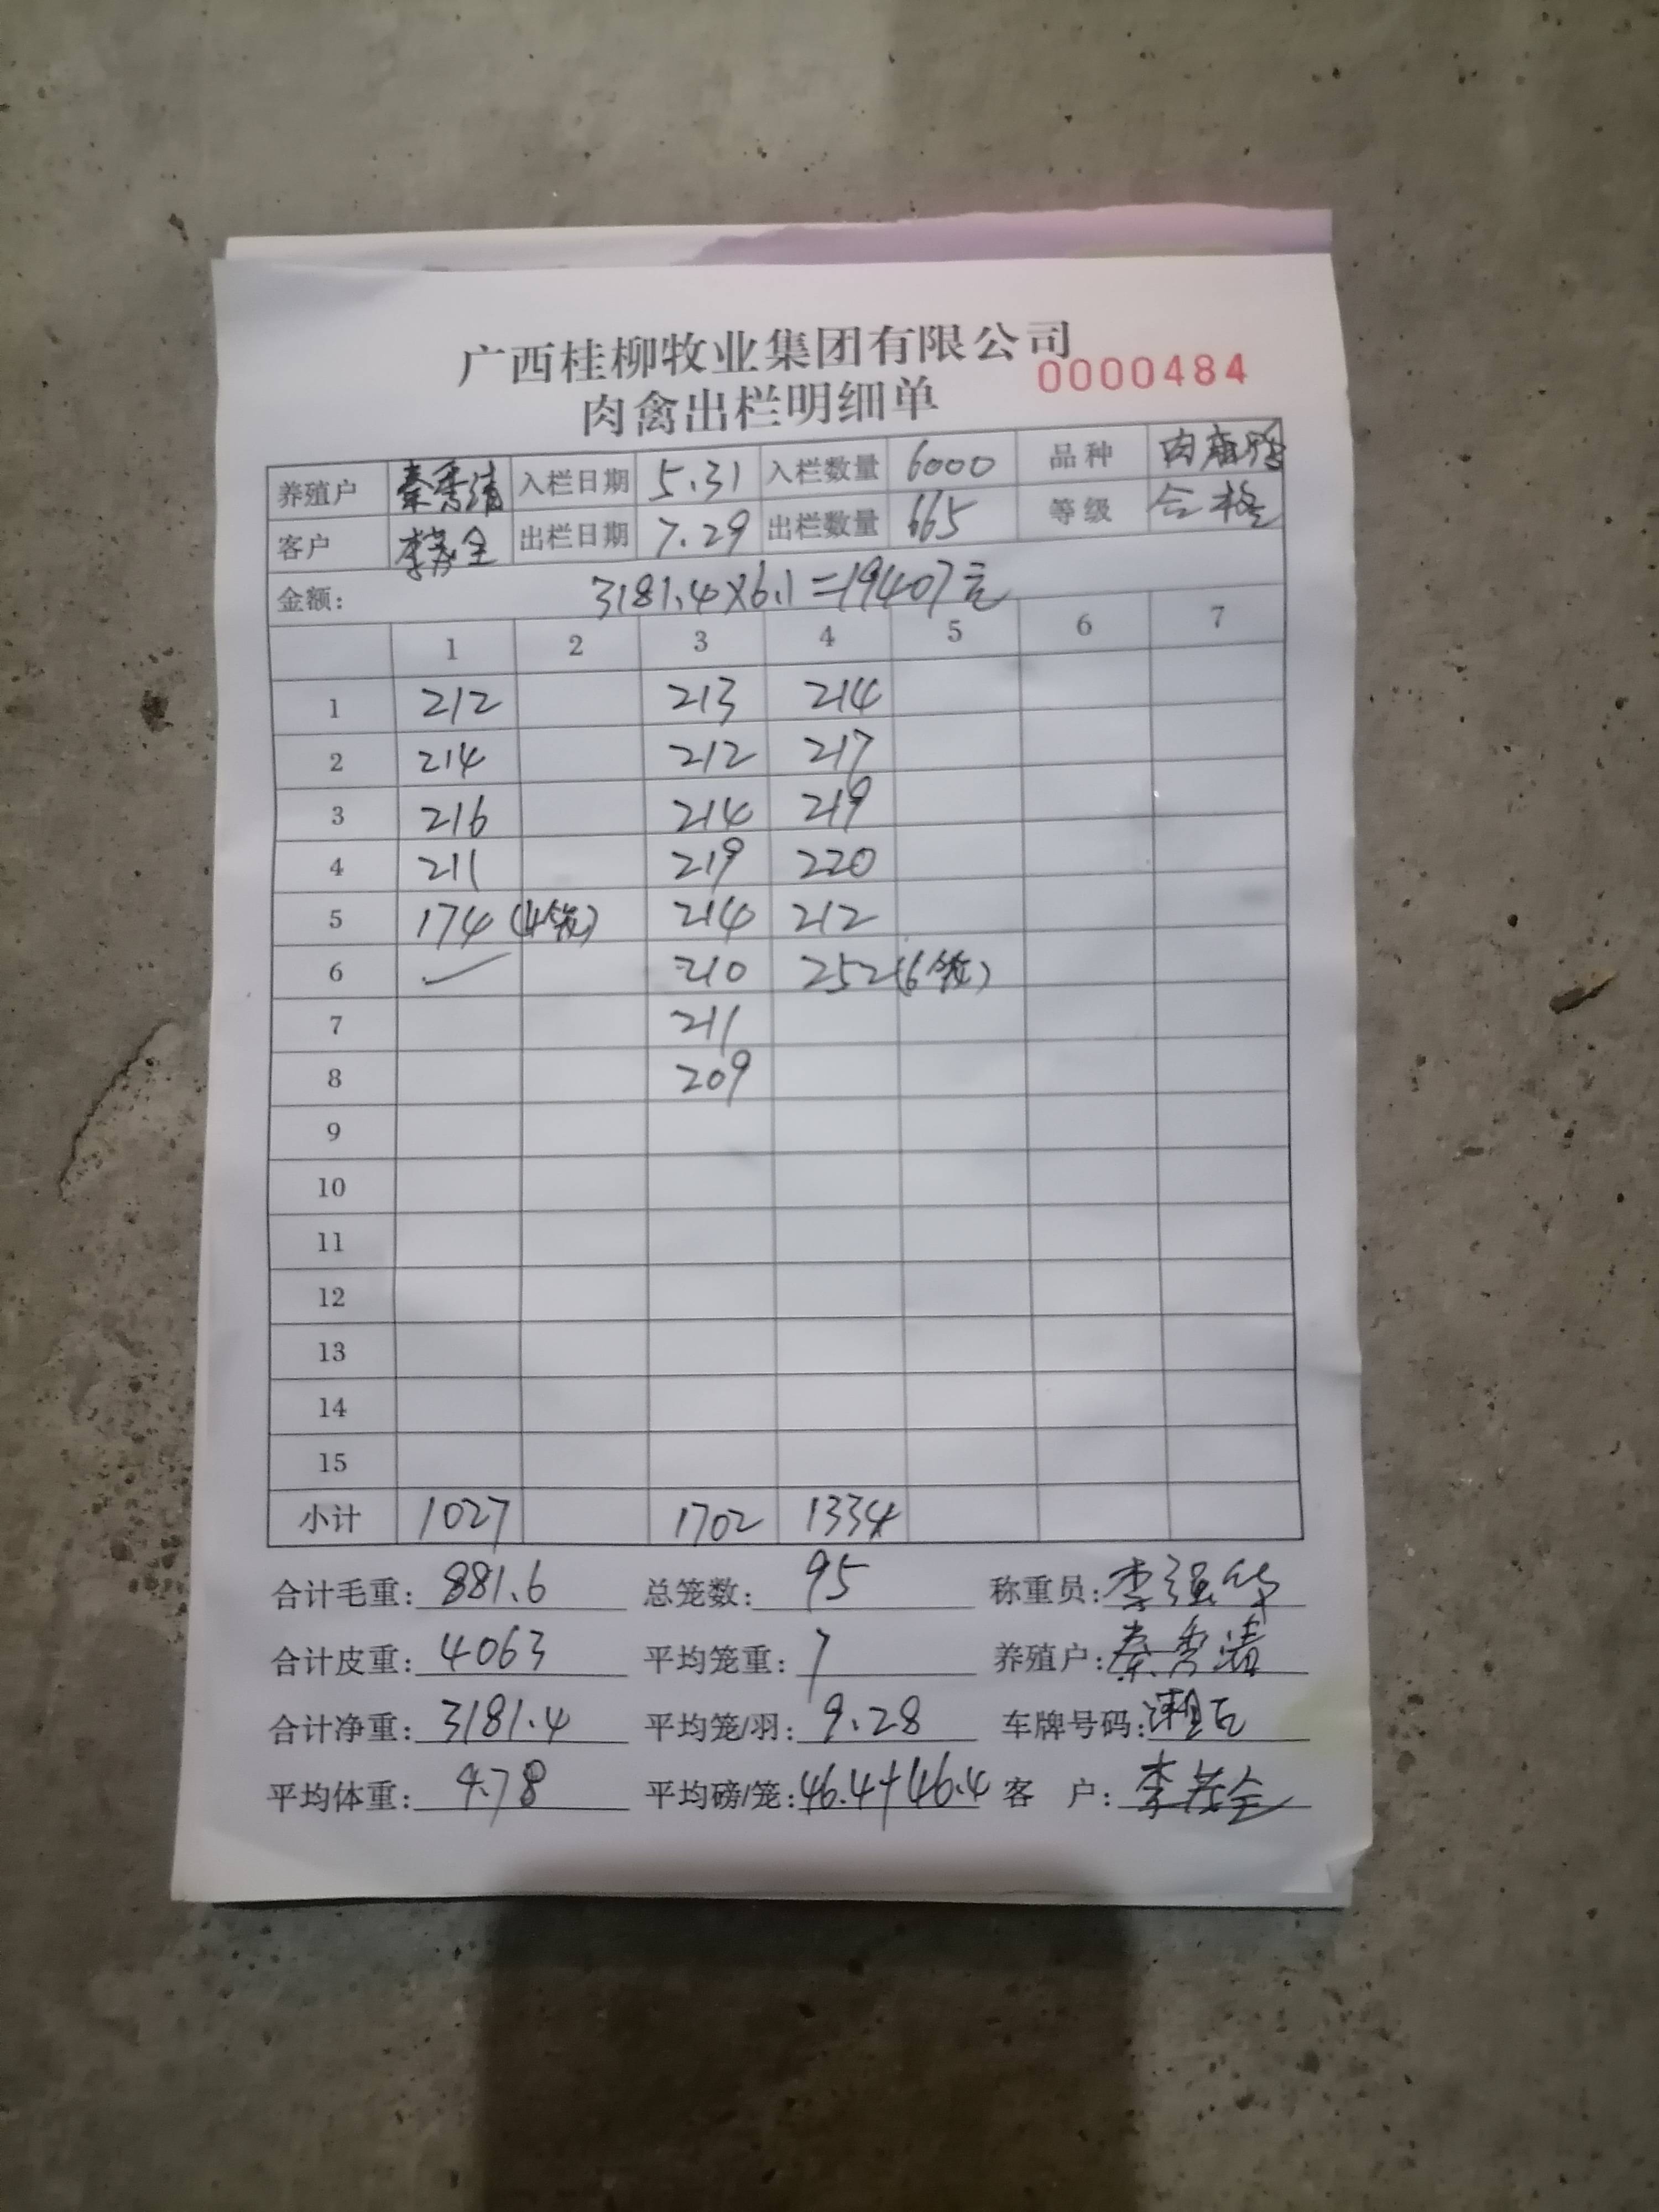 广西桂柳牧业集团有限公司
0000484
肉禽出栏明细单
养殖户 秦秀清 入栏日期 5.31 入栏数量 6000 品种 肉麻鸭
客户 李茂全 出栏日期 7.29 出栏数量 665 等级 合格
金额: 3181.4×6.1=19407元
1 2 3 4 5 6 7
1 212 213 214
2 214 212 217
3 216 214 219
4 211 219 220
5 174 (4笼) 214 212
6 210 252 (6笼)
7 211
8 209
9
10
11
12
13
14
15
小计 1027 1702 1334
合计毛重: 881.6 总笼数: 95 称重员: 李强华
合计皮重: 4063 平均笼重: 7 养殖户: 秦秀清
合计净重: 3181.4 平均笼/羽: 9.28 车牌号码:
平均体重: 4.78 平均磅/笼: 46.4+46.4 客 户: 李茂全